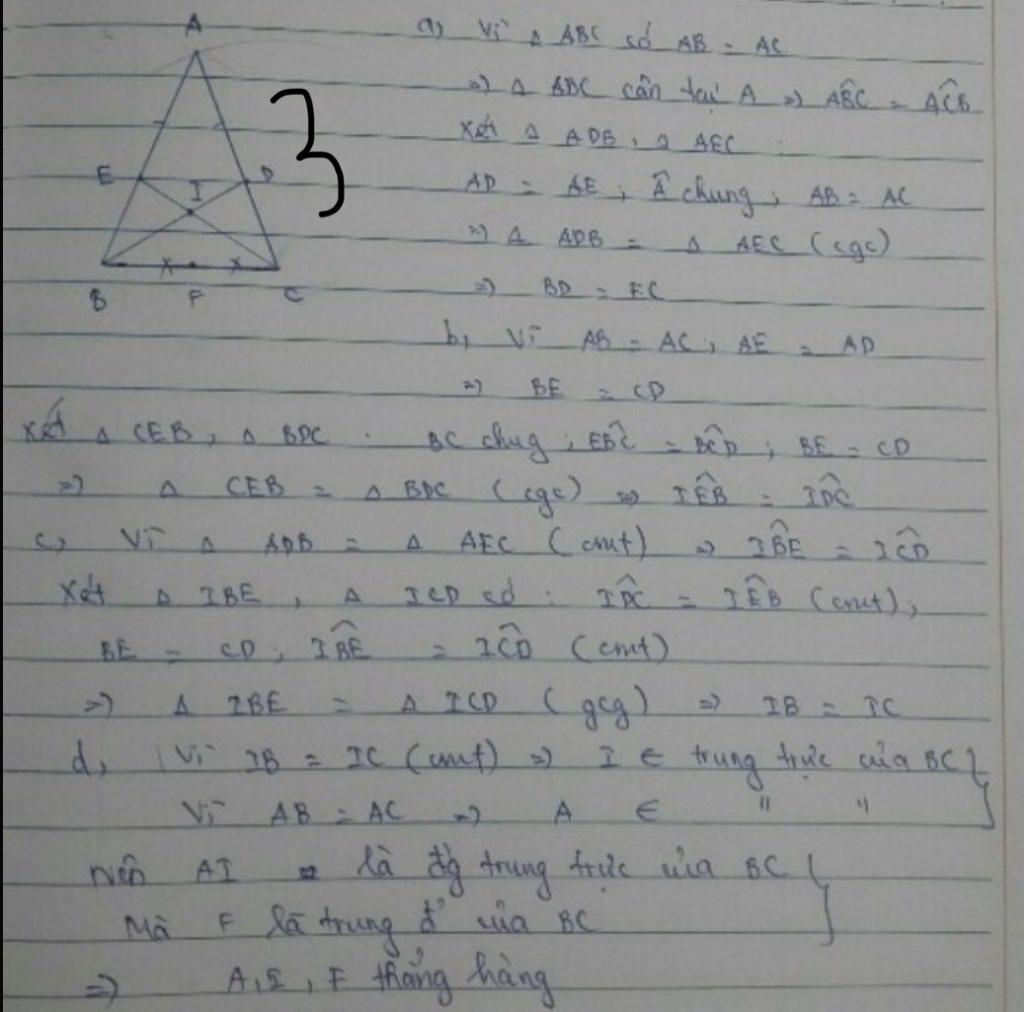 A
E
I
D
B
F
C
3
a, Vì Δ ABC có AB = AC
=> Δ ABC cân tại A => ABĈ = AĈB
Xét Δ ADB, Δ AEC :
AD = AE ; Â chung ; AB = AC
=> Δ ADB = Δ AEC (cgc)
=> BD = EC
b, Vì AB = AC, AE = AD
=> BE = CD
Xét Δ CEB, Δ BDC : BC chug ; EB̂C = BĈD ; BE = CD
=> Δ CEB = Δ BDC (cgc) => IÊB = ID̂C
c, Vì Δ ADB = Δ AEC (cmt) => IB̂E = IĈD
Xét Δ IBE, Δ ICD có : ID̂C = IÊB (cmt),
BE = CD ; IB̂E = IĈD (cmt)
=> Δ IBE = Δ ICD (gcg) => IB = IC
d, Vì IB = IC (cmt) => I ∈ trung trực của BC }
Vì AB = AC => A ∈ " "
Nên AI là đg trung trực của BC }
Mà F là trung đ' của BC
=> A, I, F thẳng hàng